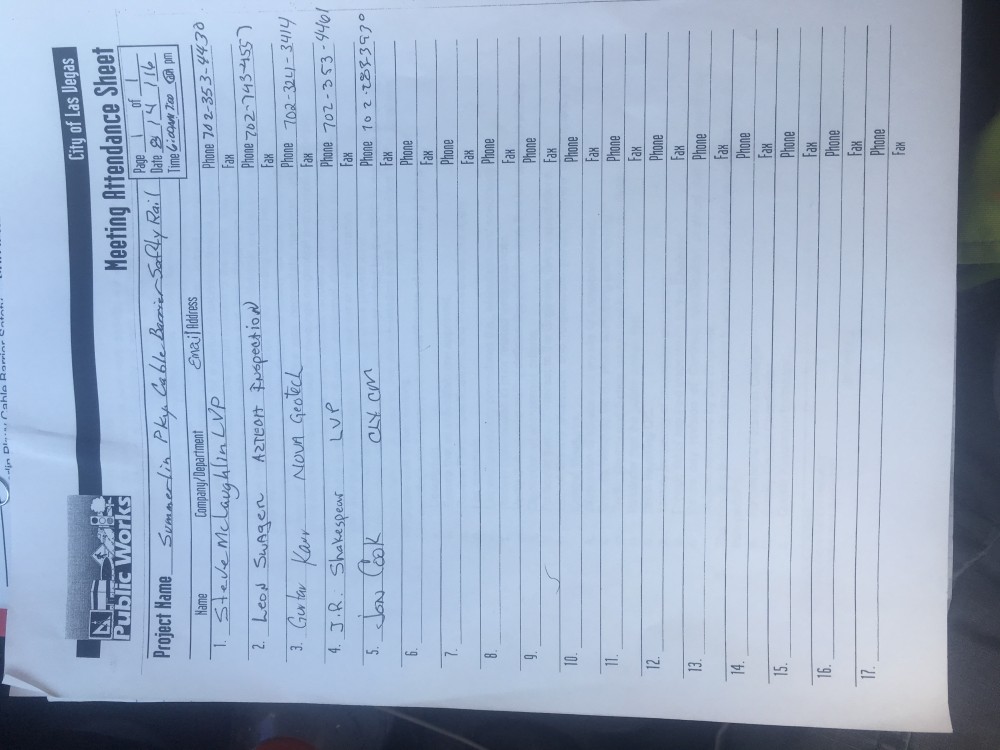 City of Las Vegas
Meeting Attendance Sheet
Public Works
Page 1 of 1
Date 8 / 4 / 16
Time 6:00am am pm
Project Name Summerlin Pky Cable Barrier Safety Rail
Name Company/Department Email Address
1. Steve McLaughlin LVP Phone 702-353-4430
Fax
2. Leon Swagen AZTECH Inspection Phone 702-743-4557
Fax
3. Karr NOVA Geotech Phone 702-321-3414
Fax
4. J.R. Shakespear LVP Phone 702-353-4461
Fax
5. Jon Cook CLV CM Phone 702-283
Fax
6. Phone
Fax
7. Phone
Fax
8. Phone
Fax
9. Phone
Fax
10. Phone
Fax
11. Phone
Fax
12. Phone
Fax
13. Phone
Fax
14. Phone
Fax
15. Phone
Fax
16. Phone
Fax
17. Phone
Fax